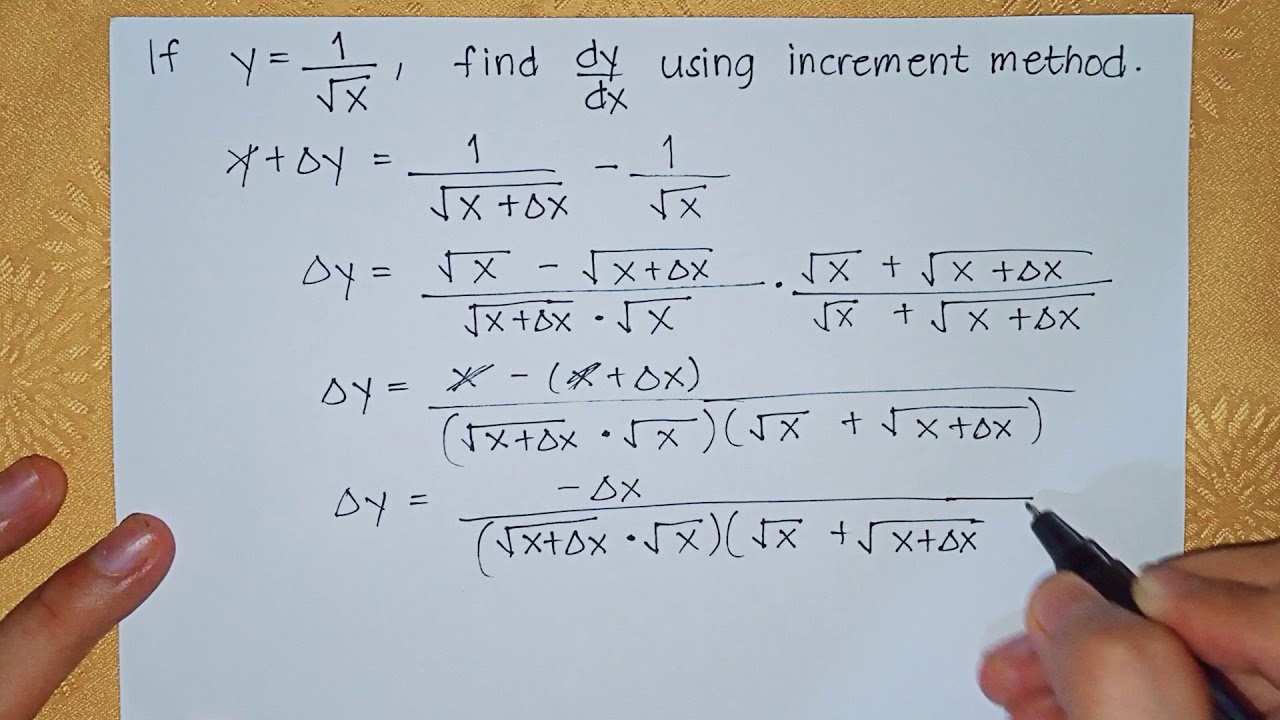 If y = 1/√x , find dy/dx using increment method.
y + Δy = 1/√(x + Δx) - 1/√x
Δy = (√x - √(x+Δx))/(√(x+Δx) · √x) · (√x + √(x + Δx))/(√x + √(x + Δx))
Δy = (x - (x + Δx))/((√(x+Δx) · √x)(√x + √(x+Δx)))
Δy = -Δx/((√(x+Δx) · √x)(√x + √(x+Δx)